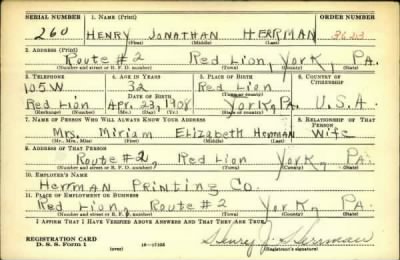 SERIAL NUMBER 1. NAME (Print) ORDER NUMBER
260 HENRY JONATHAN HERRMAN
(First) (Middle) (Last)
2. ADDRESS (Print)
Route #2 Red Lion, York, PA.
(Number and street or R. F. D. number) (Town) (County) (State)
3. TELEPHONE 4. AGE IN YEARS 5. PLACE OF BIRTH 6. COUNTRY OF CITIZENSHIP
105W 32 Red Lion
DATE OF BIRTH
Red Lion Apr. 23, 1908 York, PA. U.S.A.
(Exchange) (Number) (Mo.) (Day) (Yr.) (State or country)
7. NAME OF PERSON WHO WILL ALWAYS KNOW YOUR ADDRESS 8. RELATIONSHIP OF THAT PERSON
Mrs. Miriam Elizabeth Herrman Wife
(Mr., Mrs., Miss) (First) (Middle) (Last)
9. ADDRESS OF THAT PERSON
Route #2, Red Lion York, Pa.
(Number and street or R. F. D. number) (Town) (County) (State)
10. EMPLOYER'S NAME
Herrman Printing Co.
11. PLACE OF EMPLOYMENT OR BUSINESS
Red Lion, Route #2 York PA.
(Number and street or R. F. D. number) (Town) (County) (State)
I AFFIRM THAT I HAVE VERIFIED ABOVE ANSWERS AND THAT THEY ARE TRUE.
REGISTRATION CARD
D. S. S. Form 1 (over) Henry J Herrman
(Registrant's signature)